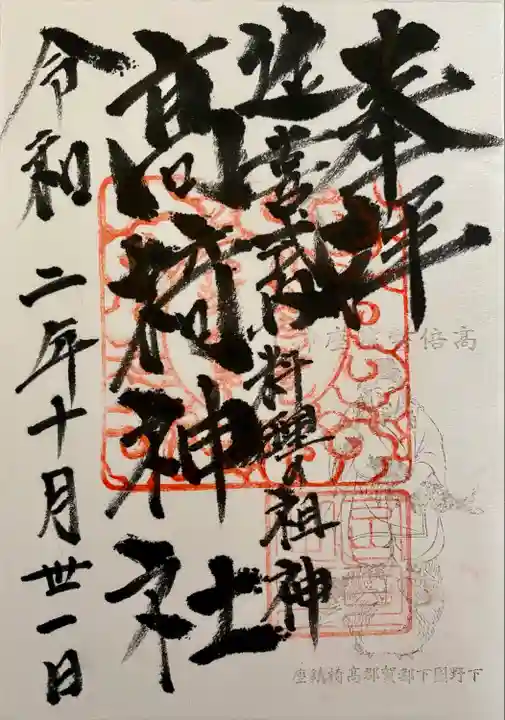 奉拝
延喜式内
料理の祖神
高椅神社
令和二年十月丗一日
下野国下都賀郡高椅鎮座